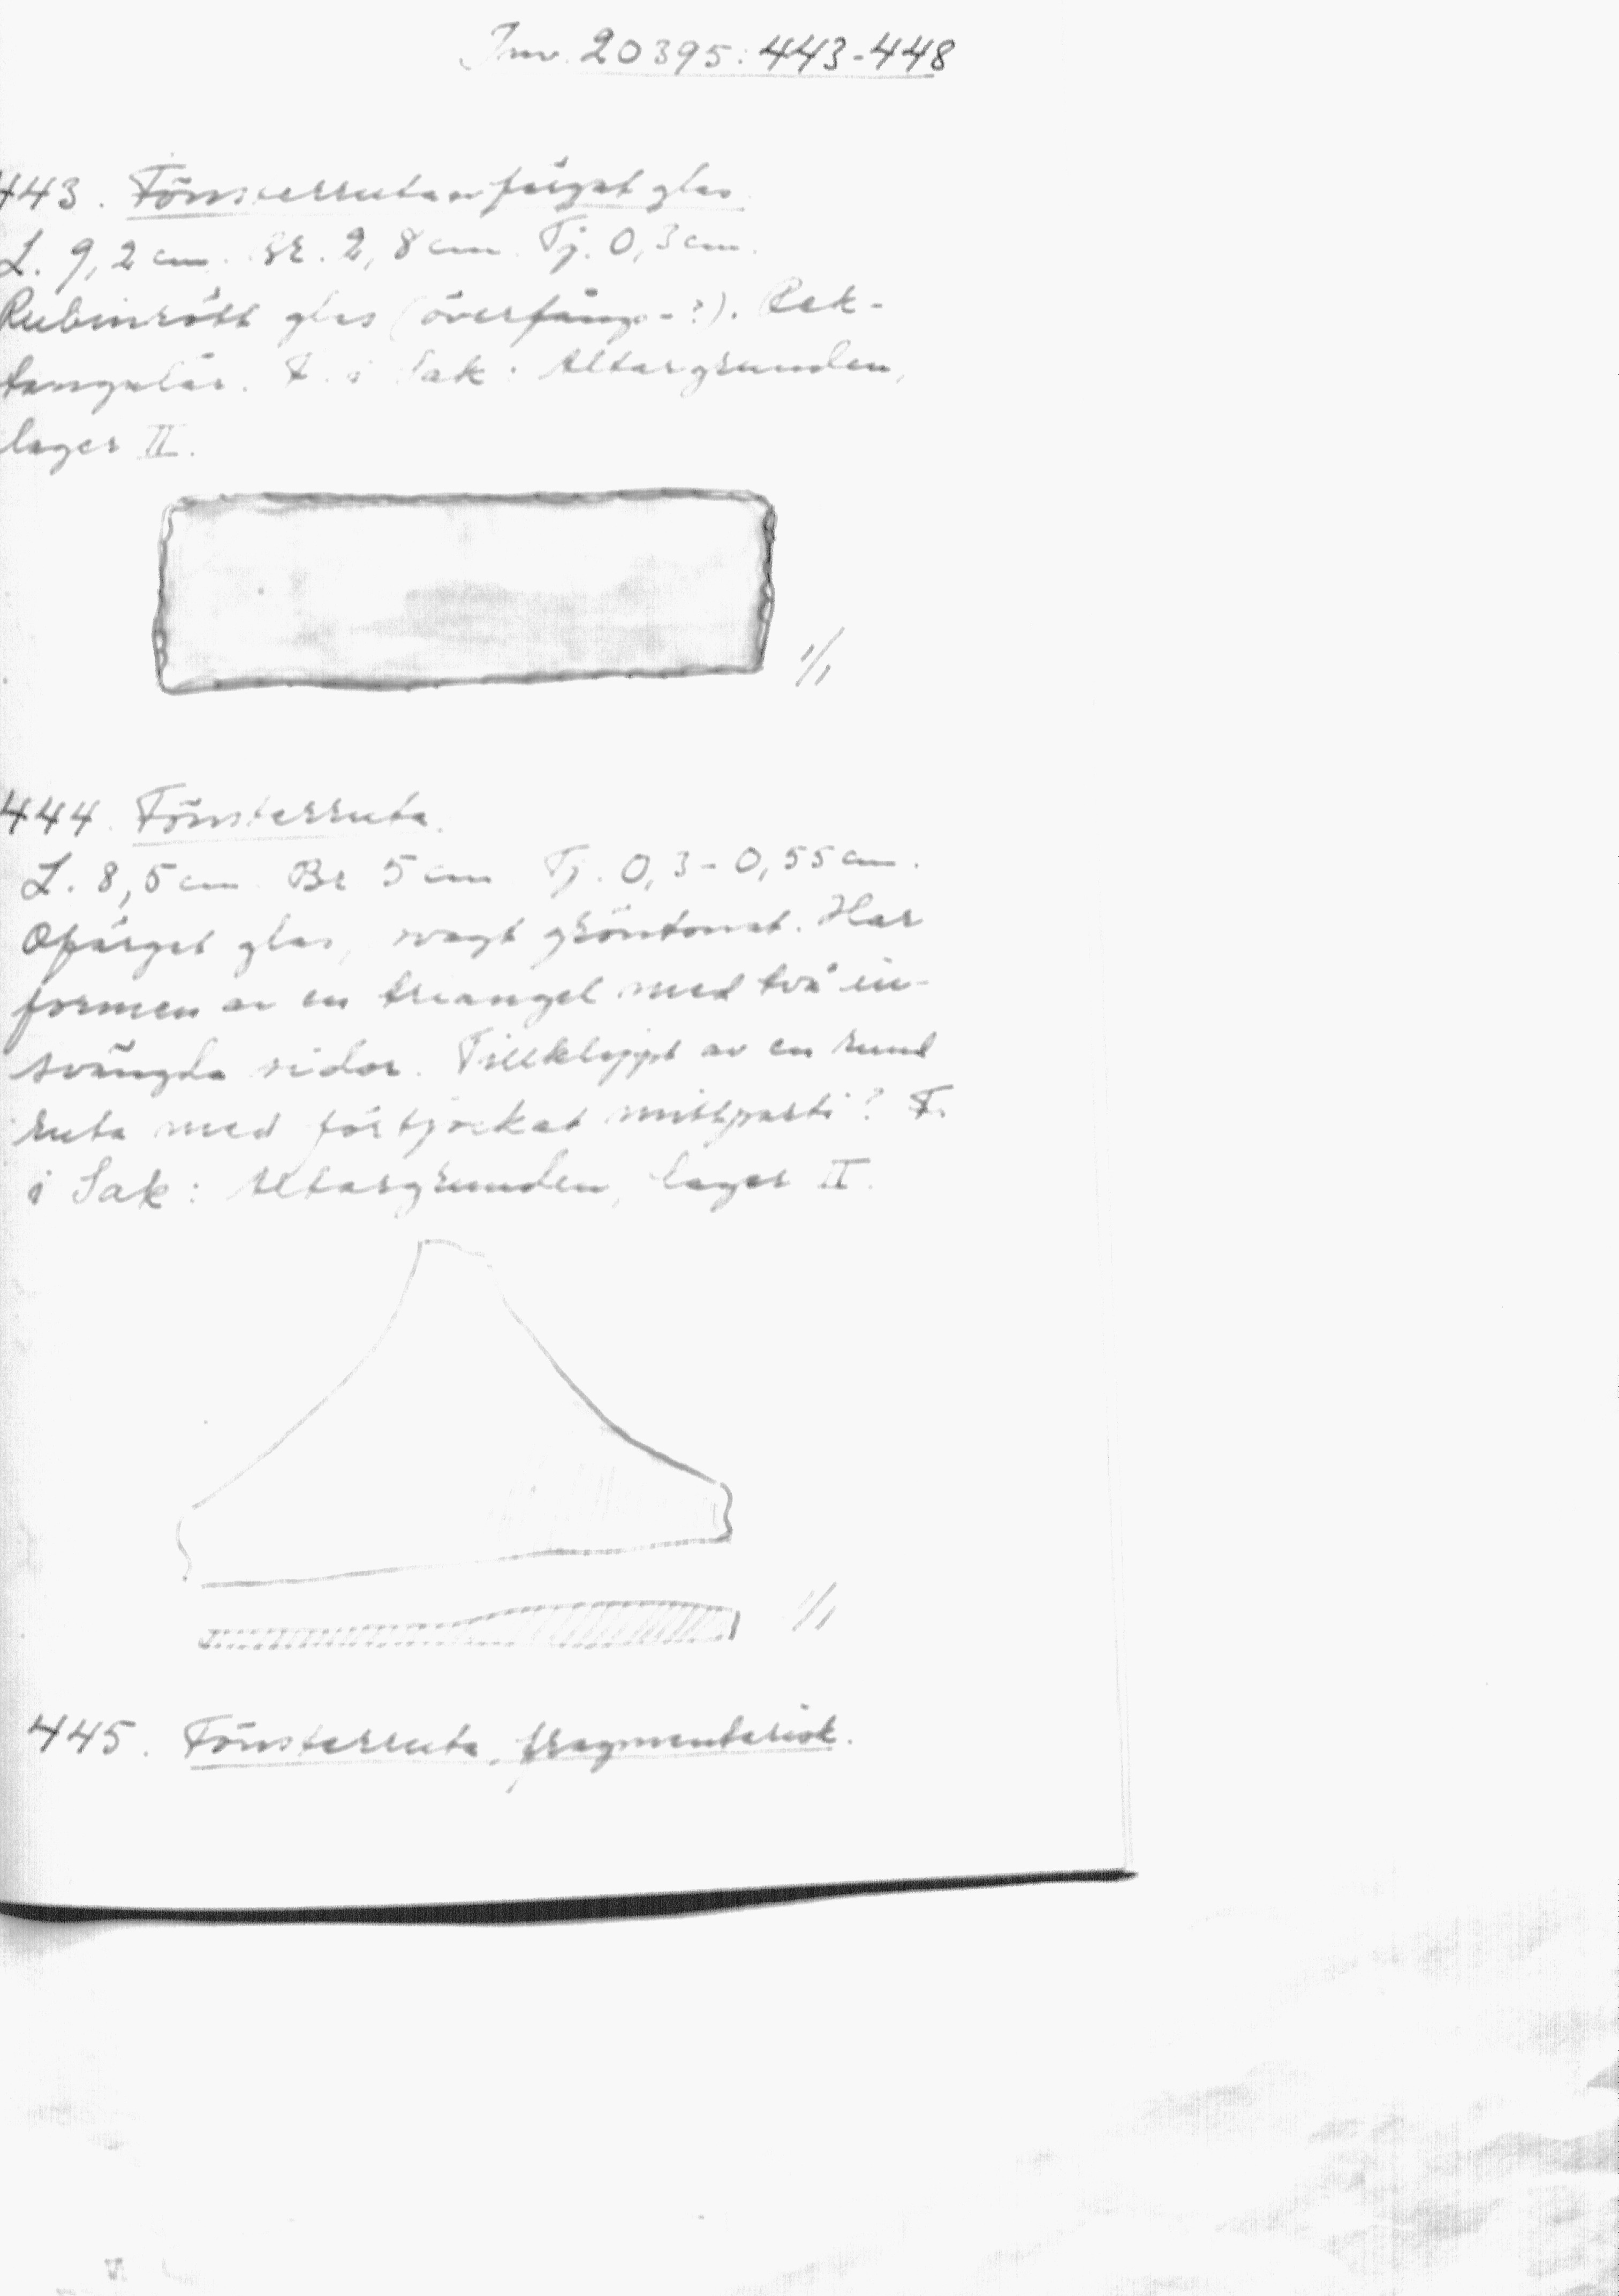 Inv. 20395: 443-448
443. Fönsterruta av färgat glas.
L. 9,2 cm. Br. 2,8 cm. Tj. 0,3 cm.
Rubinrött glas (överfångs-?). Rek-
tangulär. F. i Sak: Altargrunden,
lager II.
1/1
444. Fönsterruta.
L. 8,5 cm. Br 5 cm Tj. 0,3-0,55 cm.
Ofärgat glas, svagt gröntonat. Har
formen av en triangel med två in-
svängda sidor. Tillklippt av en rund
ruta med förtjockat mittparti? F.
i Sak: Altargrunden, lager II.
1/1
445. Fönsterruta, fragmentarisk.